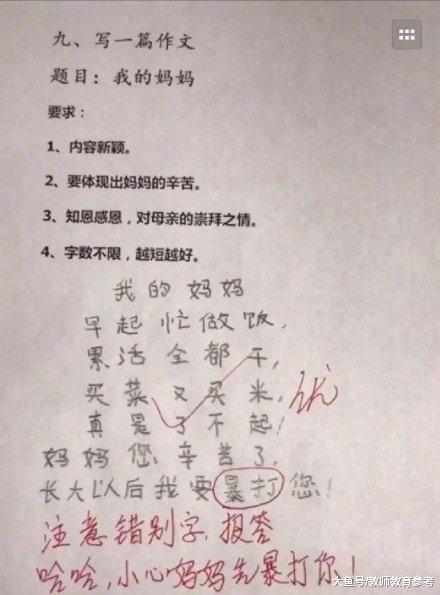 九、写一篇作文
题目：我的妈妈
要求：
1、内容新颖。
2、要体现出妈妈的辛苦。
3、知恩感恩，对母亲的崇拜之情。
4、字数不限，越短越好。
我的妈妈
早起忙做饭，
累活全都干，
买菜又买米，
真是了不起！
优
妈妈您辛苦了，
长大以后我要暴打您！
注意错别字，报答
哈哈，小心妈妈先暴打你！
大鱼号/教师教育参考